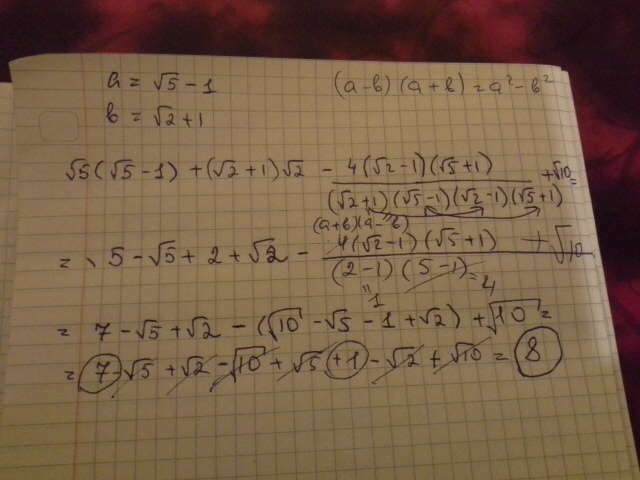 a = √5 - 1 (a-в)(a+в) = a² - в²
в = √2 + 1
√5(√5-1) + (√2+1)√2 - 4(√2-1)(√5+1) / (√2+1)(√5-1)(√2-1)(√5+1) + √10 =
(a+в)(a-в)
= 5 - √5 + 2 + √2 - 4(√2-1)(√5+1) / (2-1)(5-1) + √10
"1 = 4
= 7 - √5 + √2 - (√10 - √5 - 1 + √2) + √10 =
= 7 - √5 + √2 - √10 + √5 + 1 - √2 + √10 = 8